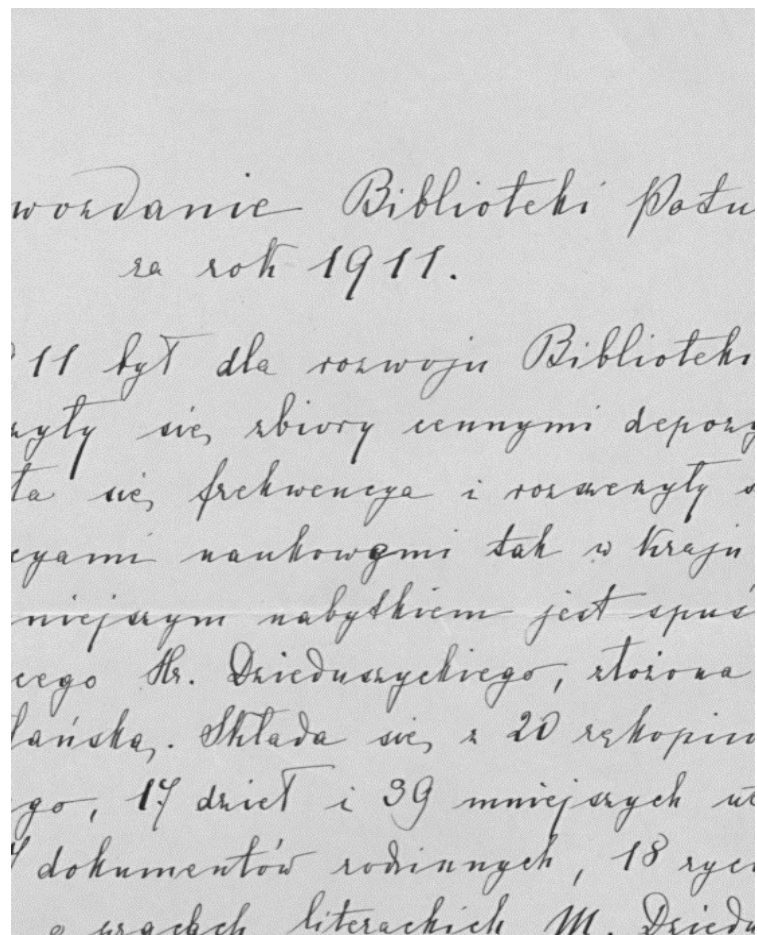 wozdanie Biblioteki Patu
za rok 1911.
11 był dla rozwoju Biblioteki
zyły się zbiory cennymi depozy
ła się frekwencya i rozszerzyły s
cyami naukowymi tak w kraju
niejszym nabytkiem jest spuś
cego Hr. Dzieduszyckiego, złożona
lańską. Składa się z 20 rękopisó
go, 17 dzieł i 39 mniejszych ut
7 dokumentów rodzinnych, 18 ryci
o pracach literackich M. Dziedu